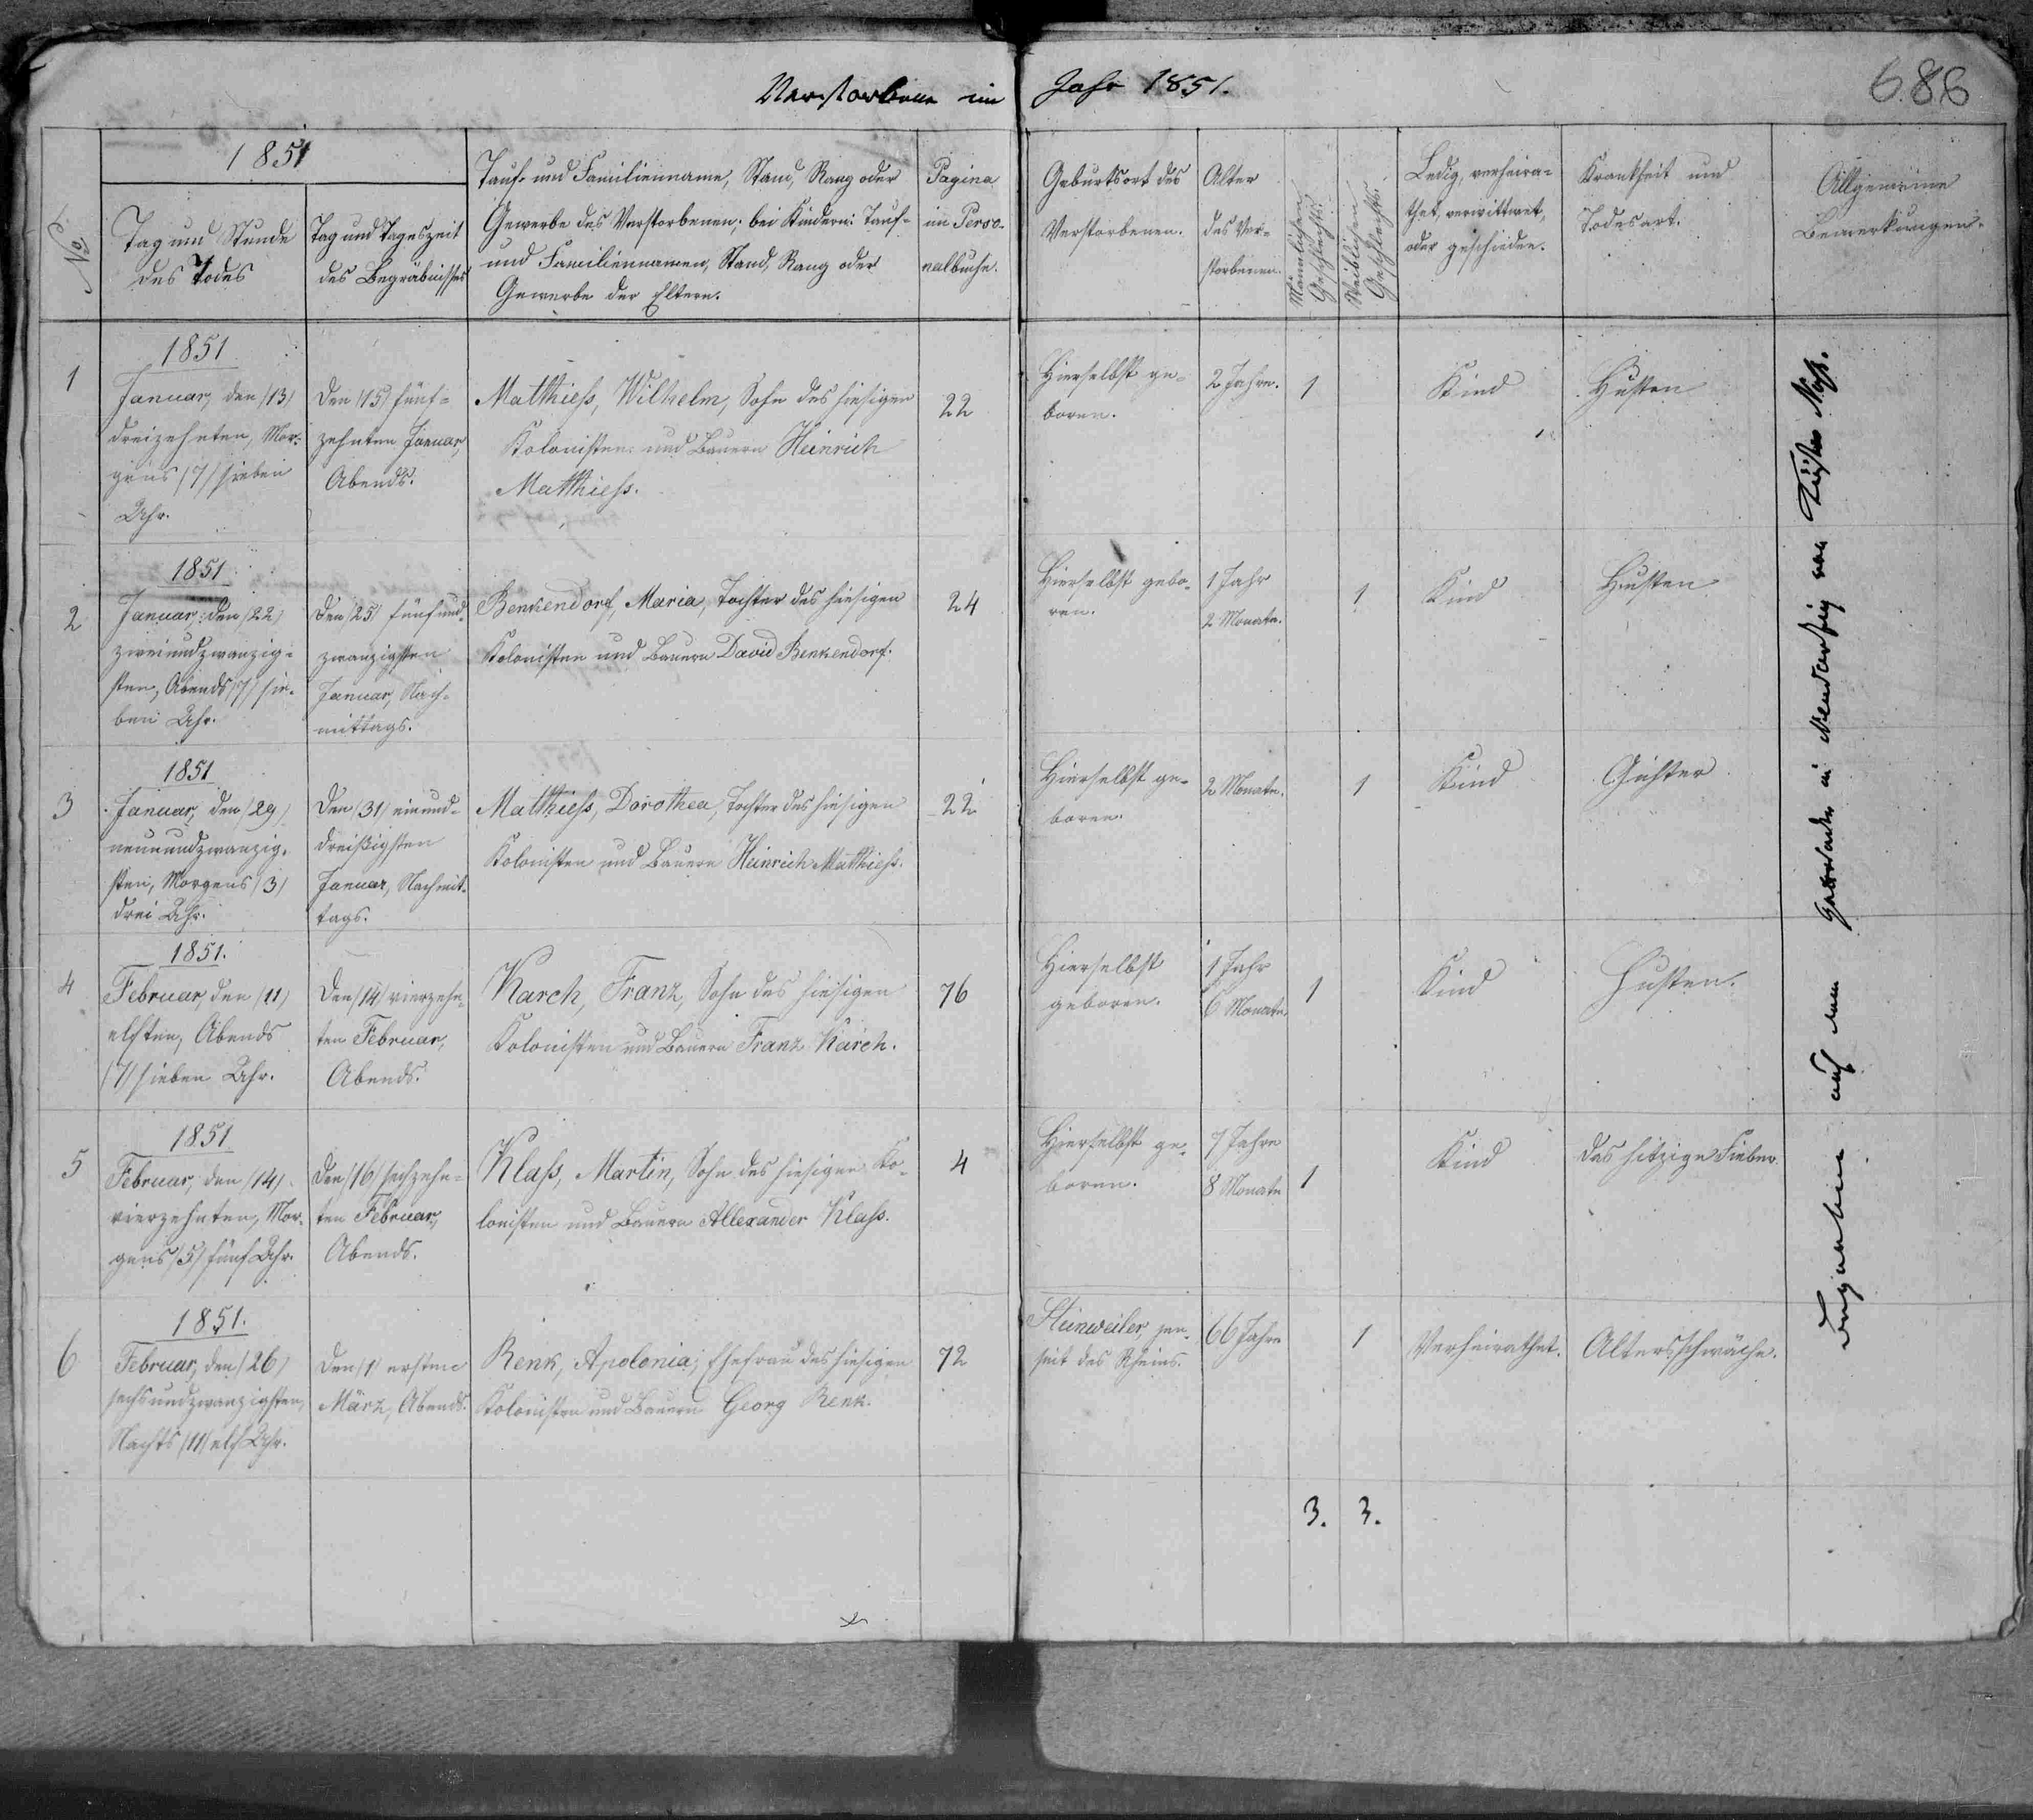 Verstorbene im Jahr 1851.
686
No.
1851
Tag und Stunde
des Todes
Tag und Tageszeit
des Begräbnisses
Tauf- und Familienname, Stand, Rang oder
Gewerbe des Verstorbenen; bei Kindern: Tauf-
und Familiennamen, Stand, Rang oder
Gewerbe der Eltern.
Pagina
im Perso-
nalbuche.
Geburtsort des
Verstorbenen.
Alter
des Ver-
storbenen.
Männlichen
Geschlechts.
Weiblichen
Geschlechts.
Ledig, verheira-
thet, verwittwet,
oder geschieden.
Krankheit und
Todesart.
Allgemeine
Bemerkungen.
1
1851
Januar, den (13)
dreizehnten, Mor-
gens (7) sieben
Uhr.
Den (15) fünf-
zehnten Januar,
Abends.
Matthiess, Wilhelm, Sohn des hiesigen
Kolonisten und Bauern Heinrich
Matthiess.
22
Hierselbst ge-
boren.
2 Jahre.
1
Kind
Husten
2
1851
Januar, den (22)
zweiundzwanzig-
sten, Abends (7) sie-
ben Uhr.
Den (25) fünfund-
zwanzigsten
Januar, Nach-
mittags.
Benkendorf, Maria, Tochter des hiesigen
Kolonisten und Bauern David Benkendorf.
24
Hierselbst gebo-
ren.
1 Jahr
2 Monate.
1
Kind
Husten
3
1851
Januar, den (29)
neunundzwanzig-
sten, Morgens (3)
drei Uhr.
Den (31) einund-
dreißigsten
Januar, Nachmit-
tags.
Matthiess, Dorothea, Tochter des hiesigen
Kolonisten und Bauern Heinrich Matthiess.
22
Hierselbst ge-
boren.
2 Monate.
1
Kind
Gichter
4
1851.
Februar, den (11)
elften, Abends
(7) sieben Uhr.
Den (14) vierzehn-
ten Februar,
Abends.
Karch, Franz, Sohn des hiesigen
Kolonisten und Bauern Franz Karch.
76
Hierselbst
geboren.
1 Jahr
6 Monate.
1
Kind
Husten.
5
1851
Februar, den (14)
vierzehnten, Mor-
gens (5) fünf Uhr.
Den (16) sechzehn-
ten Februar,
Abends.
Klass, Martin, Sohn des hiesigen Ko-
lonisten und Bauern Allexander Klass.
4
Hierselbst ge-
boren.
7 Jahre
8 Monate
1
Kind
Das hitzige Fieber.
6
1851.
Februar, den (26)
sechsundzwanzigsten,
Nachts (11) elf Uhr.
Den (1) ersten
März, Abends.
Renk, Apolonia, Ehefrau des hiesigen
Kolonisten und Bauern Georg Renk.
72
Steinweiler, jen-
seit des Rheins.
66 Jahre
1
Verheirathet.
Altersschwäche.
3. 3.
auf dem in Neudorf von Küster